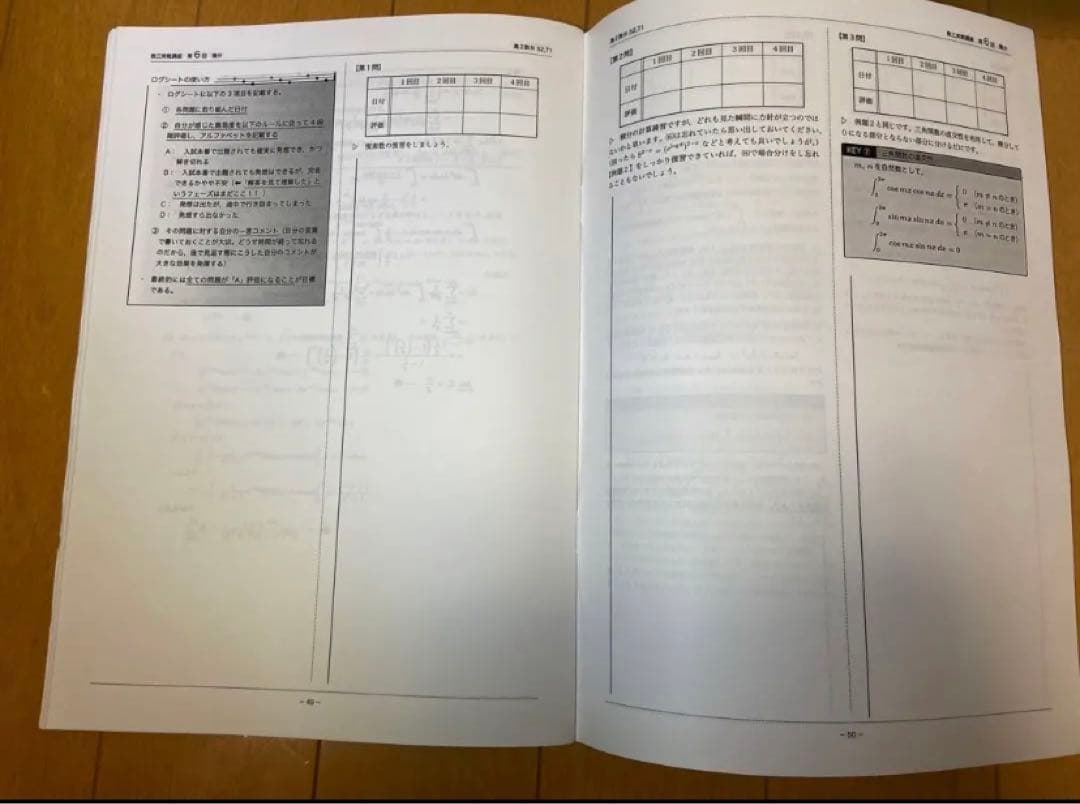 第6回 積分
高2数分 S2,T1
ログシートの使い方
・ ログシートに以下の3項目を記載する。
① 各問題に取り組んだ日付
② 自分が感じた難易度を以下のルールに沿って4段
階評価し、アルファベットを記載する
A： 入試本番で出題されても確実に発想でき、かつ
解き切れる
B： 入試本番で出題されても発想はできるが、完答
できるかやや不安（⇐「解答を見て理解した」と
いうフェーズはまだここ！！）
C： 発想は出たが、途中で行き詰まってしまった
D： 発想すら出なかった
③ その問題に対する自分の一言コメント（自分の言葉
で書いておくことが大切。どうせ時間が経って忘れる
のだから、後で見返す際にこうした自分のコメントが
大きな効果を発揮する）
・ 最終的には全ての問題が「A」評価になることが目標
である。
【第1問】
1回目 2回目 3回目 4回目
日付
評価
▷ 複素数の復習をしましょう。
- 49 -
高2数分 S2,T1
第6回 積分
【第2問】
1回目 2回目 3回目 4回目
日付
評価
▷ 積分の計算練習ですが、どれも見た瞬間に方針が立つのでは
ないかと思います。
は忘れていたら思い出しておいてください。
などと考えても良いでしょうが。）
【例題2】をしっかり復習できていれば、
で場合分けをし忘れ
ることもないでしょう。
【第3問】
1回目 2回目 3回目 4回目
日付
評価
▷ 例題2と同じです。三角関数の直交性を利用して、積分して
0になる部分とならない部分に分けるだけです。
KEY 三角関数の直交性
m, n を自然数として、
∫₀^{2π} cos mx cos nx dx = { 0 (m ≠ n のとき)
π (m = n のとき)
∫₀^{2π} sin mx sin nx dx = { 0 (m ≠ n のとき)
π (m = n のとき)
∫₀^{2π} cos mx sin nx dx = 0
- 50 -